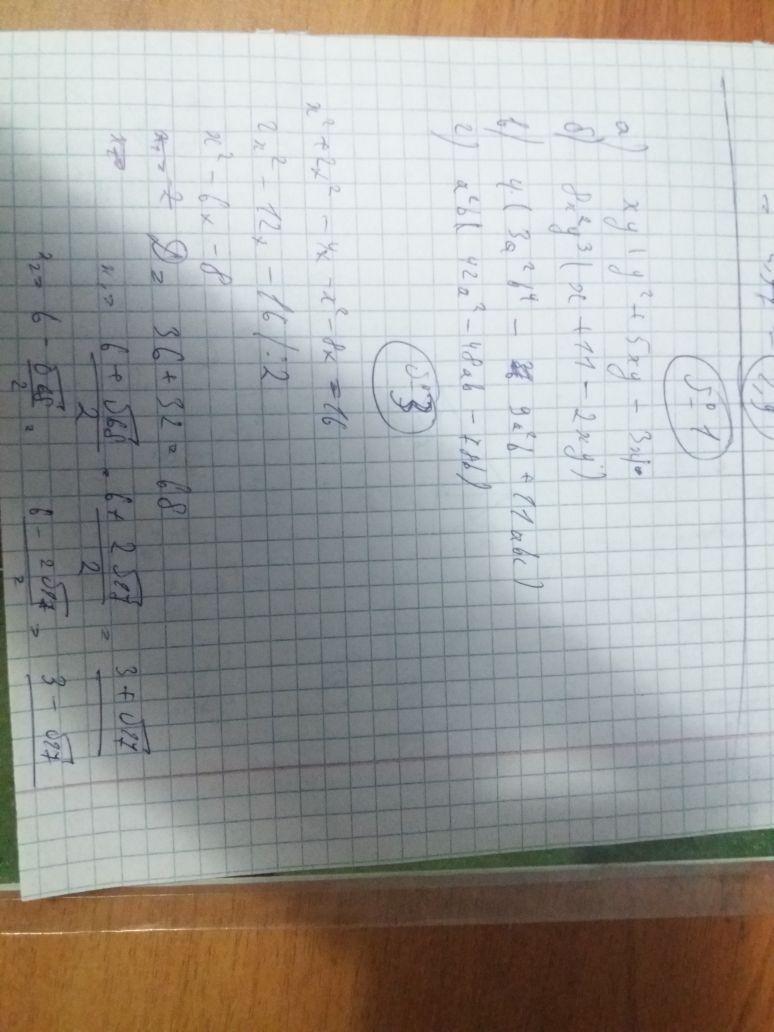 №1
а) xy(y² + 5xy - 3y
б) 8x²y³(x + 11 - 2xy)
в) 4(3a²b⁴ - 9a²b + 11abc)
г) a²b(42a² - 48ab - 78b)
№3
x² + 2x² - 4x - x² - 8x = 16
2x² - 12x - 16 / :2
x² - 6x - 8
D = 36 + 32 = 68
x₁ = 6 + √68 / 2 = 6 + 2√17 / 2 = 3 + √17
x₂ = 6 - √68 / 2 = 6 - 2√17 / 2 = 3 - √17